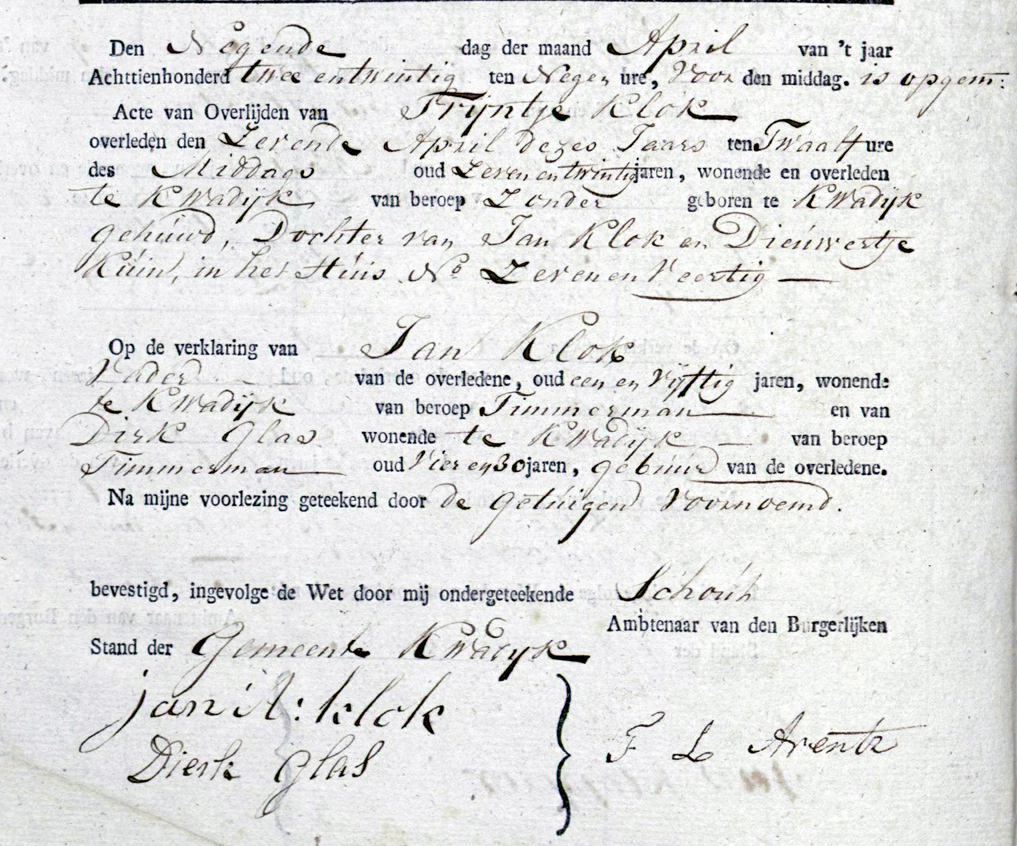 Den Negende dag der maand April van 't jaar
Achttienhonderd twee en twintig ten Negen ure, Voor den middag. is opgem:
Acte van Overlijden van Trijntje Klok
overleden den Zevende April dezes Jaars ten Twaalf ure
des Middags oud Zeven en twintig jaren, wonende en overleden
te KWadijk van beroep Zonder geboren te KWadijk
gehuwd, Dochter van Jan Klok en Dieuwertje
Kuin, in het Huis No Zeven en Veertig —
Op de verklaring van Jan Klok
Vader van de overledene, oud een en Vyftig jaren, wonende
te KWadijk van beroep Timmerman en van
Dirk Glas wonende te KWadijk — van beroep
Timmerman oud Vier en 30 jaren, gebuur van de overledene.
Na mijne voorlezing geteekend door de getuigen Voornoemd.
bevestigd, ingevolge de Wet door mij ondergeteekende Schout
Ambtenaar van den Burgerlijken
Stand der Gemeente KWadyk
jan klok
Dierk glas
F L Arentz